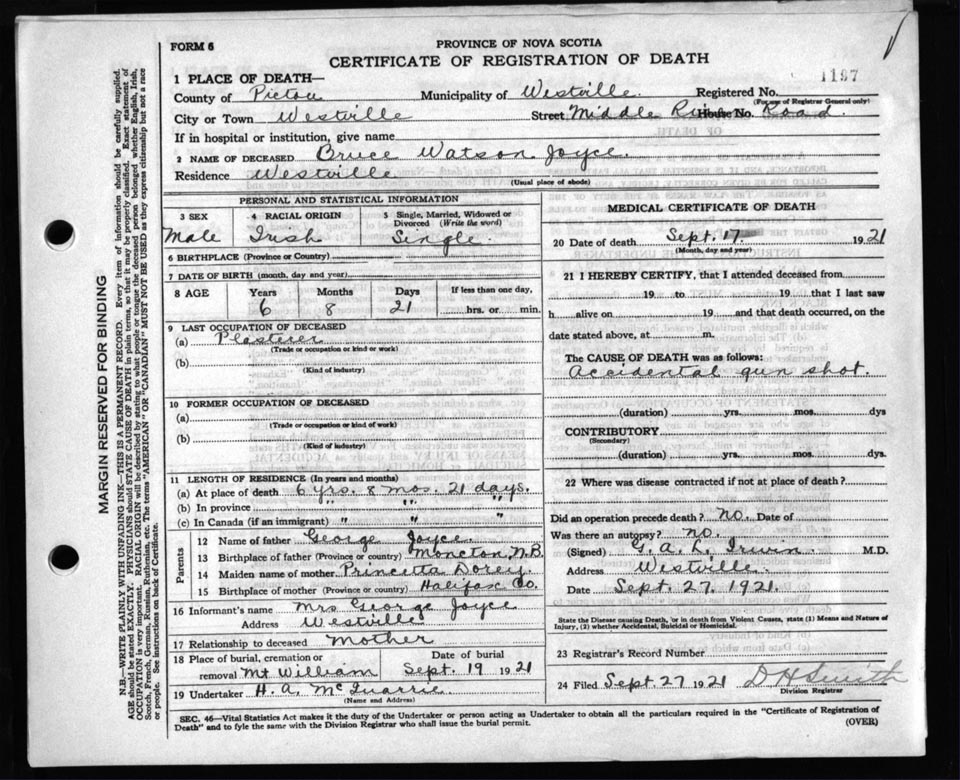 FORM 6
PROVINCE OF NOVA SCOTIA
CERTIFICATE OF REGISTRATION OF DEATH
1197
1 PLACE OF DEATH—
County of Pictou Municipality of Westville Registered No.
(For use of Registrar General only)
City or Town Westville Street Middle River House No. Road
If in hospital or institution, give name
2 NAME OF DECEASED Bruce Watson Joyce.
Residence Westville
(Usual place of abode)
PERSONAL AND STATISTICAL INFORMATION
3 SEX 4 RACIAL ORIGIN 5 Single, Married, Widowed or Divorced (Write the word)
Male Irish Single.
6 BIRTHPLACE (Province or Country)
7 DATE OF BIRTH (month, day and year)
8 AGE Years Months Days If less than one day,
6 8 21 hrs. or min.
9 LAST OCCUPATION OF DECEASED
(a) Plasterer
(Trade or occupation or kind or work)
(b)
(Kind of industry)
10 FORMER OCCUPATION OF DECEASED
(a)
(Trade or occupation or kind or work)
(b)
(Kind of industry)
11 LENGTH OF RESIDENCE (In years and months)
(a) At place of death 6 yrs. 8 mos. 21 days.
(b) In province " " "
(c) In Canada (if an immigrant) " " "
Parents
12 Name of father George Joyce
13 Birthplace of father (Province or country) Moncton, N.B.
14 Maiden name of mother Princetta Dorey
15 Birthplace of mother (Province or country) Halifax Co.
16 Informant's name Mrs George Joyce
Address Westville
17 Relationship to deceased Mother
18 Place of burial, cremation or removal Mt William Date of burial Sept. 19 1921
19 Undertaker H. A. McQuarrie
(Name and Address)
MEDICAL CERTIFICATE OF DEATH
20 Date of death Sept. 17 1921
(Month, day and year)
21 I HEREBY CERTIFY, that I attended deceased from
19 to 19 that I last saw
h alive on 19 and that death occurred, on the
date stated above, at m.
The CAUSE OF DEATH was as follows:
Accidental gun shot.
(duration) yrs. mos. dys
CONTRIBUTORY
(Secondary)
(duration) yrs. mos. dys.
22 Where was disease contracted if not at place of death?
Did an operation precede death? no. Date of
Was there an autopsy? no.
(Signed) G. A. L. Irwin M.D.
Address Westville.
Date Sept. 27. 1921.
State the Disease causing Death, or in death from Violent Causes, state (1) Means and Nature of
Injury, (2) whether Accidental, Suicidal or Homicidal.
23 Registrar's Record Number
24 Filed Sept. 27 1921 D H Smith
Division Registrar
SEC. 46—Vital Statistics Act makes it the duty of the Undertaker or person acting as Undertaker to obtain all the particulars required in the "Certificate of Registration of
Death" and to fyle the same with the Division Registrar who shall issue the burial permit.
(OVER)
MARGIN RESERVED FOR BINDING
N.B.—WRITE PLAINLY WITH UNFADING INK—THIS IS A PERMANENT RECORD. Every item of information should be carefully supplied.
AGE should be stated EXACTLY. PHYSICIANS should STATE CAUSE OF DEATH in plain terms, so that it may be properly classified. Exact statement of
OCCUPATION is very important. RACIAL ORIGIN will be described by stating to what people or tongue the deceased person belonged whether English, Irish,
Scotch, French, German, Russian, Ruthenian, etc. The terms "AMERICAN" OR "CANADIAN" MUST NOT BE USED as they express citizenship but not a race
or people. See instructions on back of Certificate.